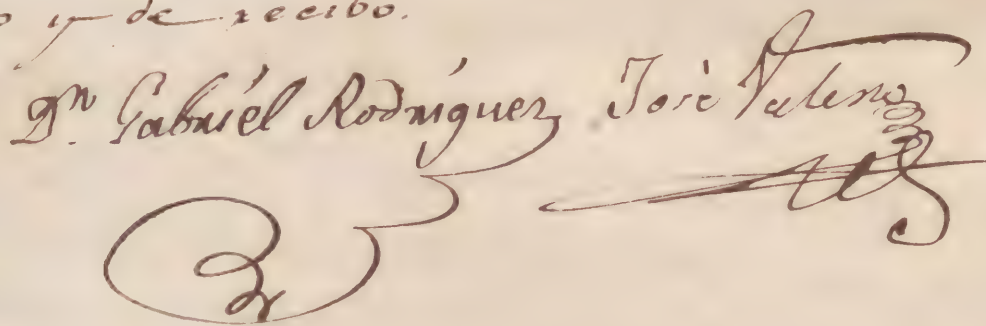 o y de recibo.
Dn. Gabriél Rodríguez José Valeno